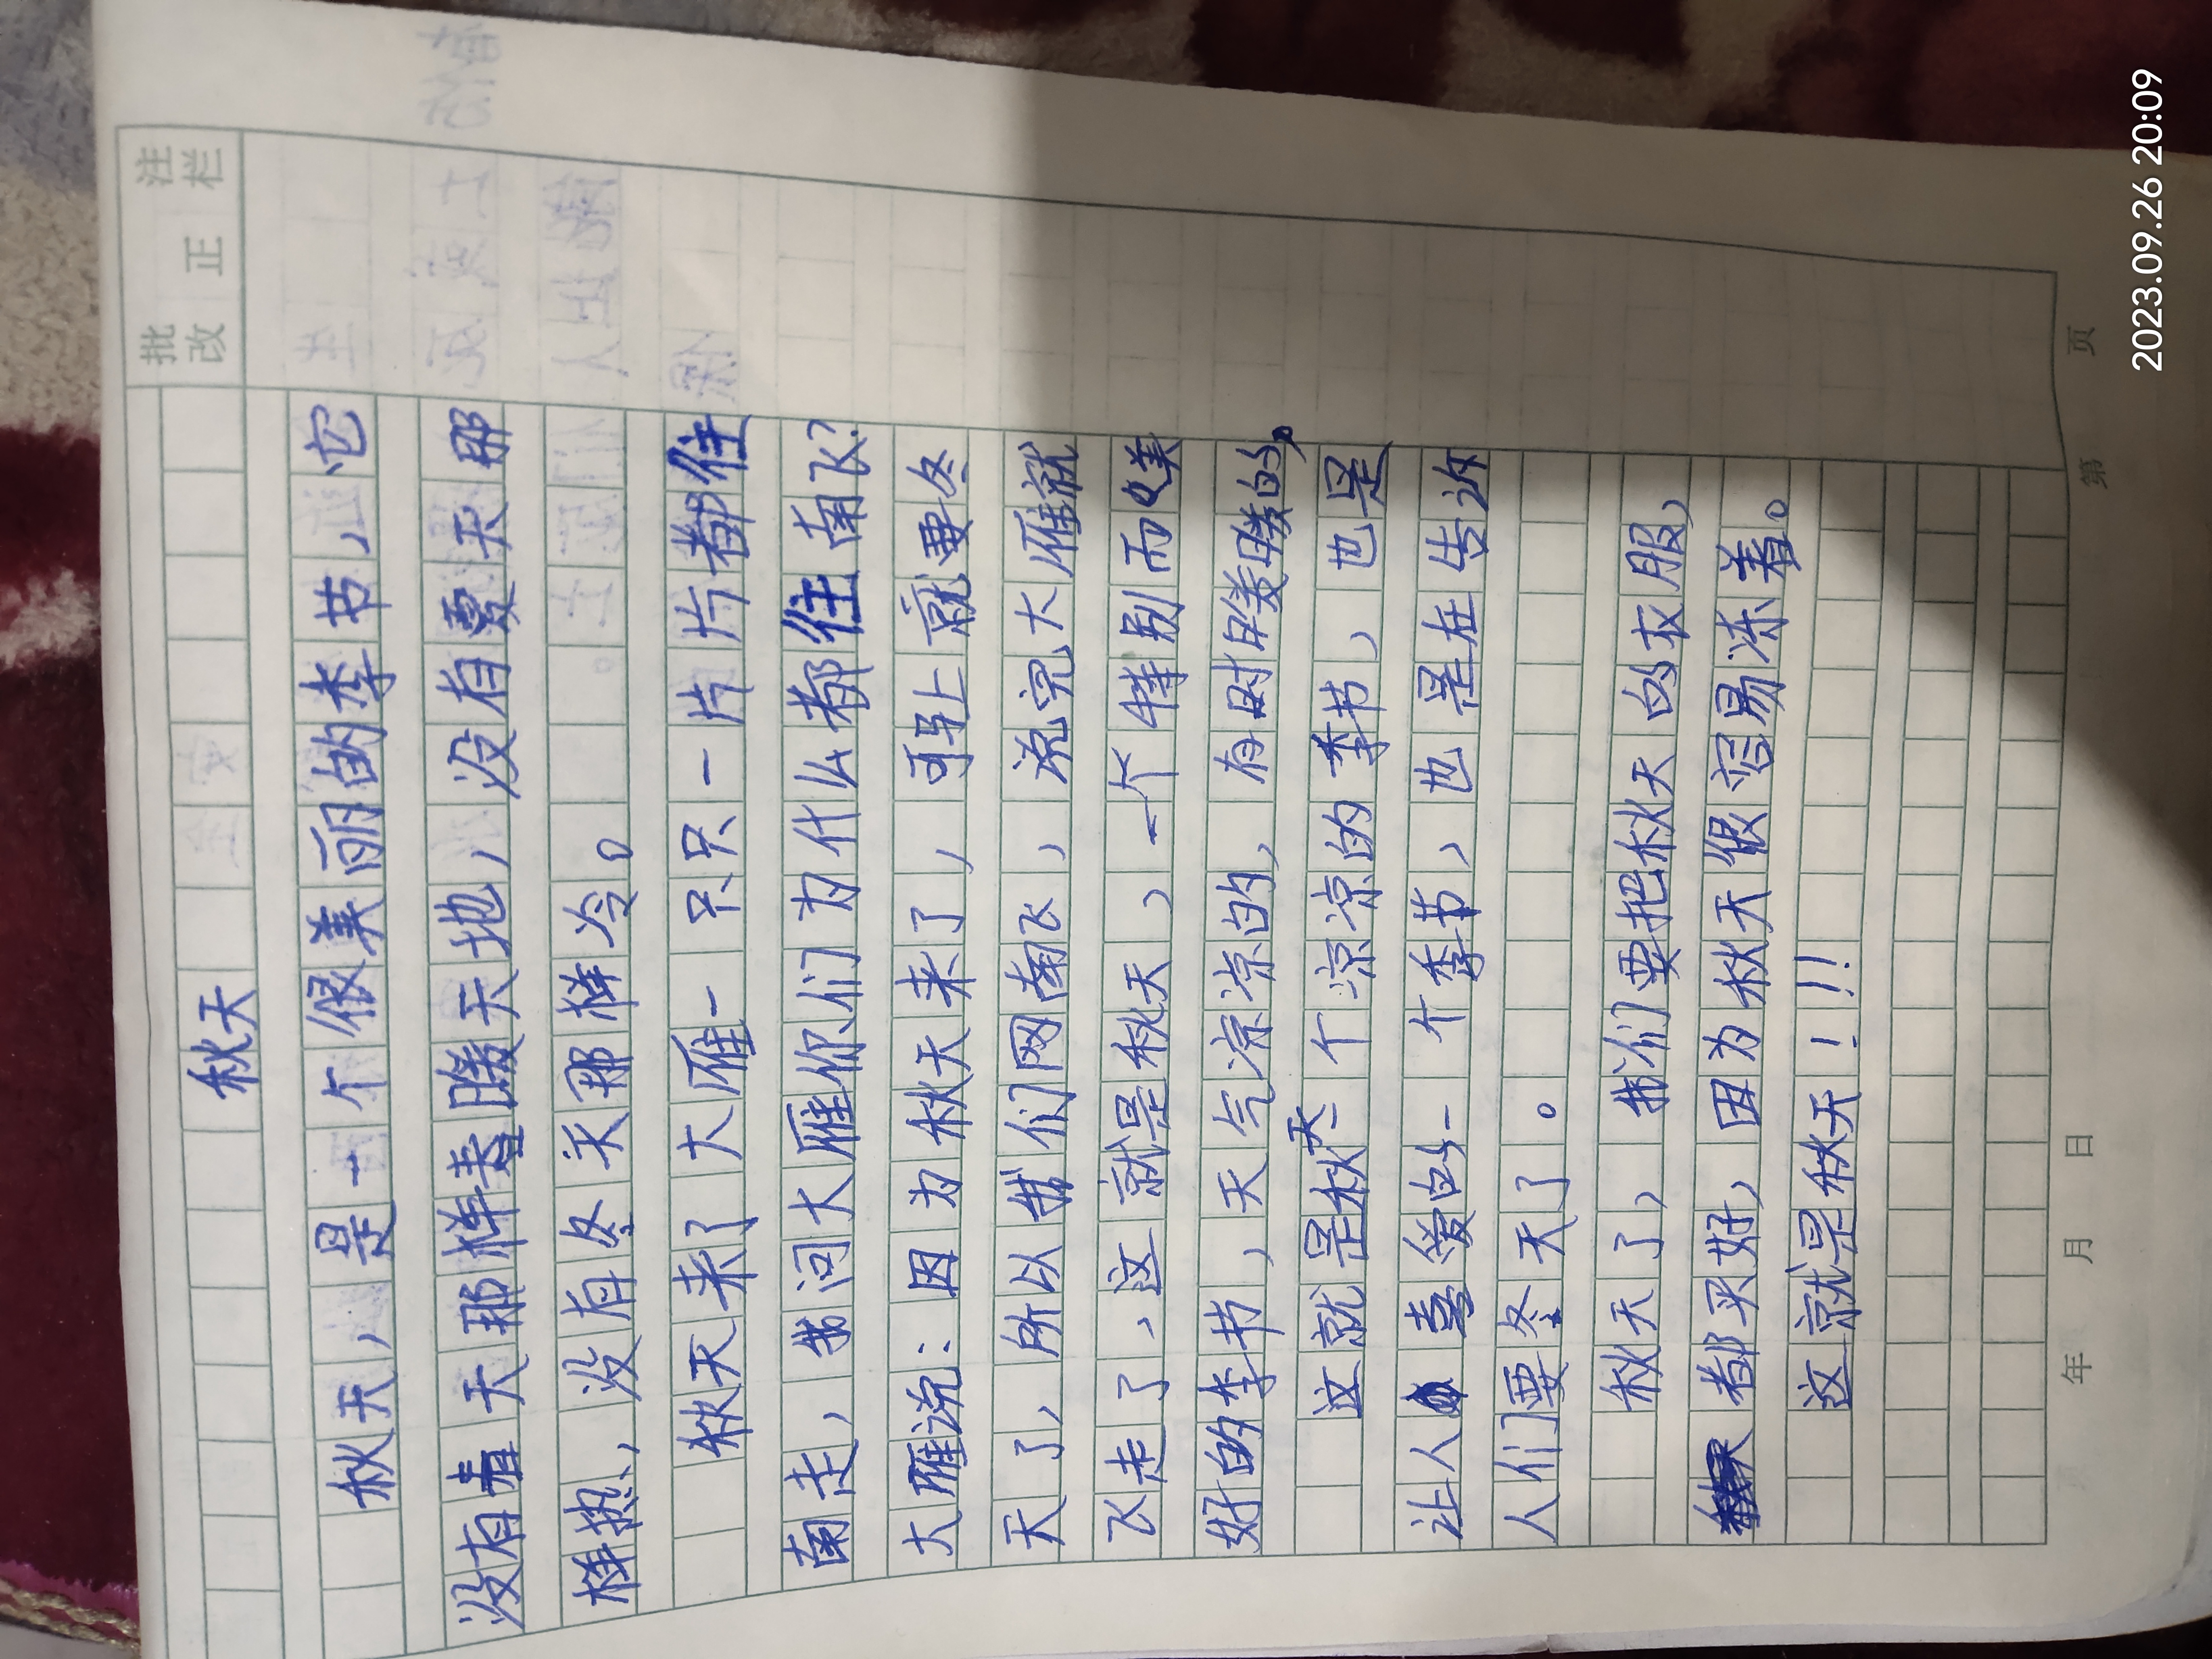 批 注
改 正 栏
秋天
秋天,是一个很美丽的季节,它
没有春天那样春暖天地,没有夏天那
样热,没有冬天那样冷。
秋天来了大雁一只只一片片都往
南走,我问大雁你们为什么都往南飞?
大雁说:因为秋天来了,马上就要冬
天了,所以我们网南飞,说完大雁就
飞走了,这就是秋天,一个特别而又美
好的季节,天气凉凉的,有时暖暖的。
这就是秋天个凉凉的季节,也是
让人喜爱的一个季节,也是在告诉
人们要冬天了。
秋天了,我们要把秋天的衣服,
都买好,因为秋天很容易冻着。
这就是秋天!!!
年 月 日 第 页
2023.09.26 20:09